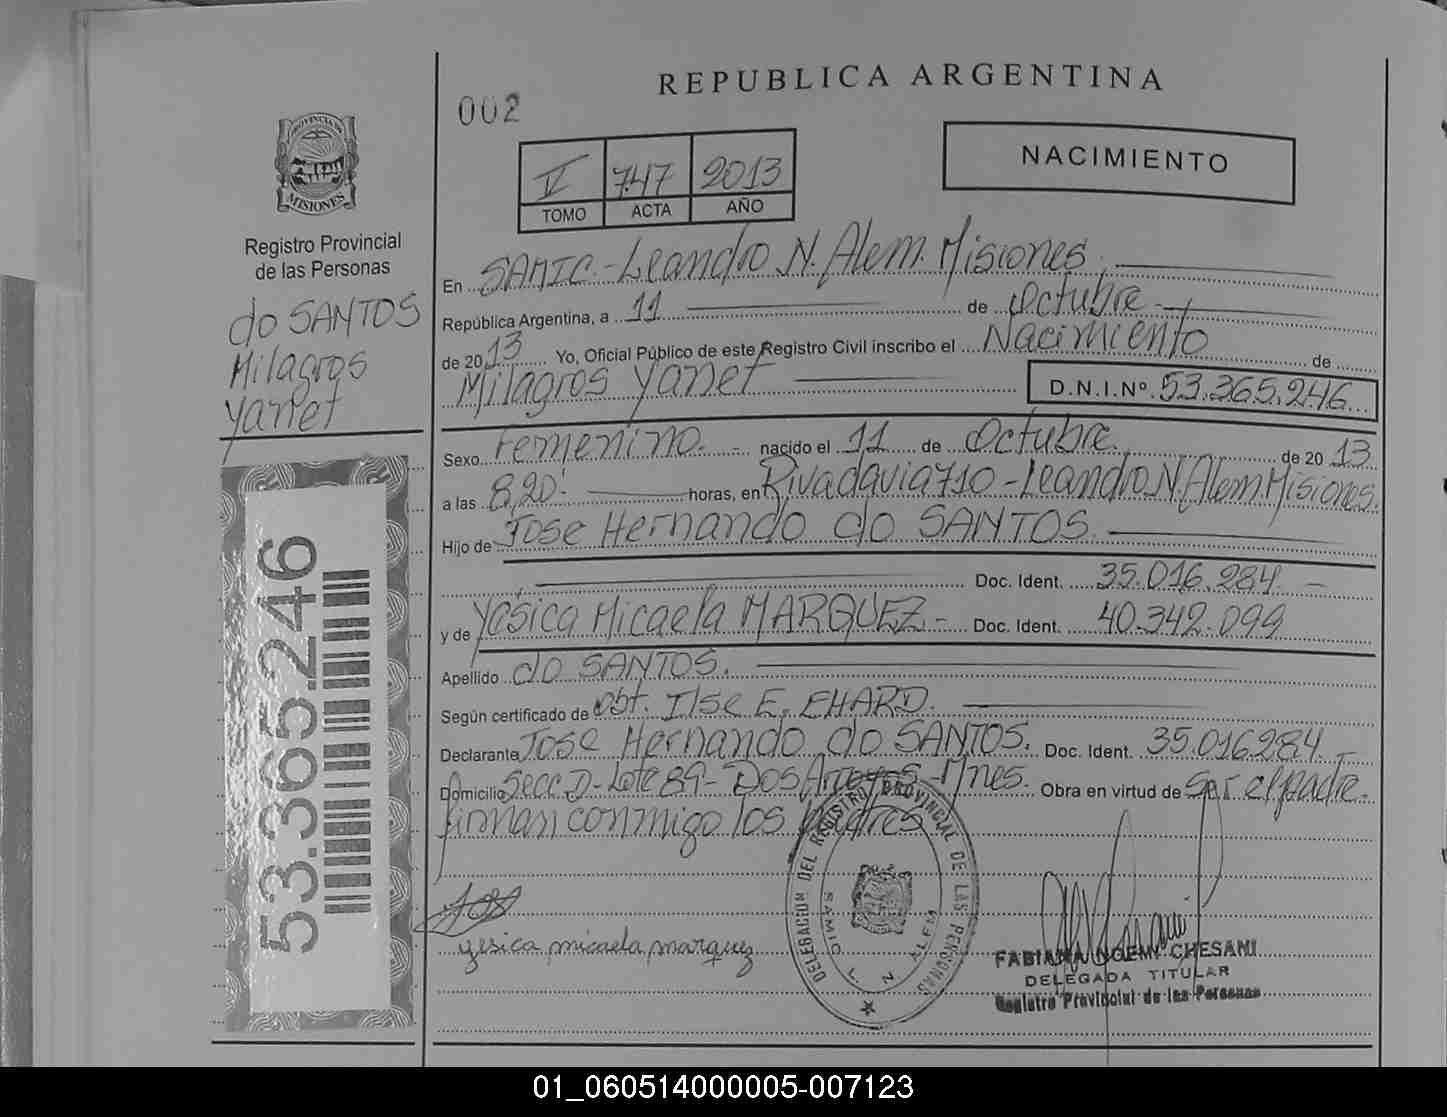 REPUBLICA ARGENTINA
002
V 747 2013
TOMO ACTA AÑO
NACIMIENTO
PROVINCIA DE
MISIONES
Registro Provincial
de las Personas
do SANTOS
Milagros
Yanet
53.365.246
En SAMIC.-Leandro N. Alem. Misiones,
República Argentina, a 11 de Octubre
de 2013 Yo, Oficial Público de este Registro Civil inscribo el Nacimiento de
Milagros Yanet D.N.I.Nº. 53.365.246
Sexo Femenino.- nacido el 11 de Octubre. de 2013
a las 8,20' horas, en Rivadavia 710 - Leandro N. Alem. Misiones.
Hijo de Jose Hernando do SANTOS.
Doc. Ident. 35.016.284.-
y de Yesica Micaela MARQUEZ- Doc. Ident. 40.342.099
Apellido do SANTOS.
Según certificado de obt. Ilse E. EHARD.
Declarante Jose Hernando do SANTOS. Doc. Ident. 35.016.284.-
Domicilio Secc D- Lote 89- Dos Arroyos- Mnes. Obra en virtud de Ser el padre.
firman conmigo los Padres
DELEGACION DEL REGISTRO PROVINCIAL DE LAS PERSONAS
SAMIC L. N. ALEM
yesica micaela marquez
FABIANA NOEMY CHESANI
DELEGADA TITULAR
Registro Provincial de las Personas
01_060514000005-007123